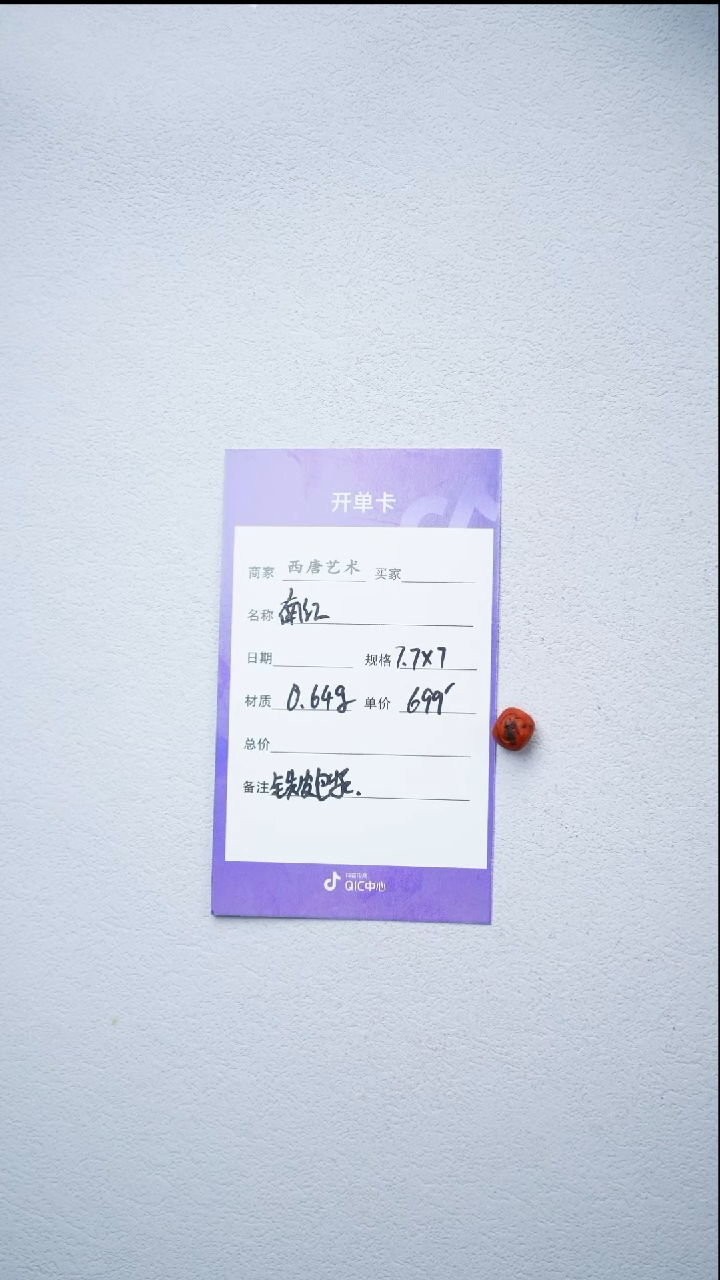 开单卡
商家 西唐艺术 买家
名称 南红
日期 规格 7.7×7
材质 0.64g 单价 699
总价
备注 铁皮包浆.
抖音电商
QIC中心